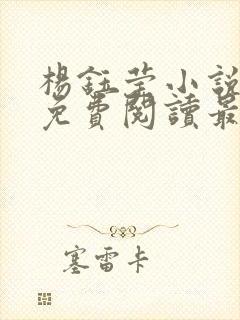 楊鈺莹小說
免費閱讀最
塞雷卡